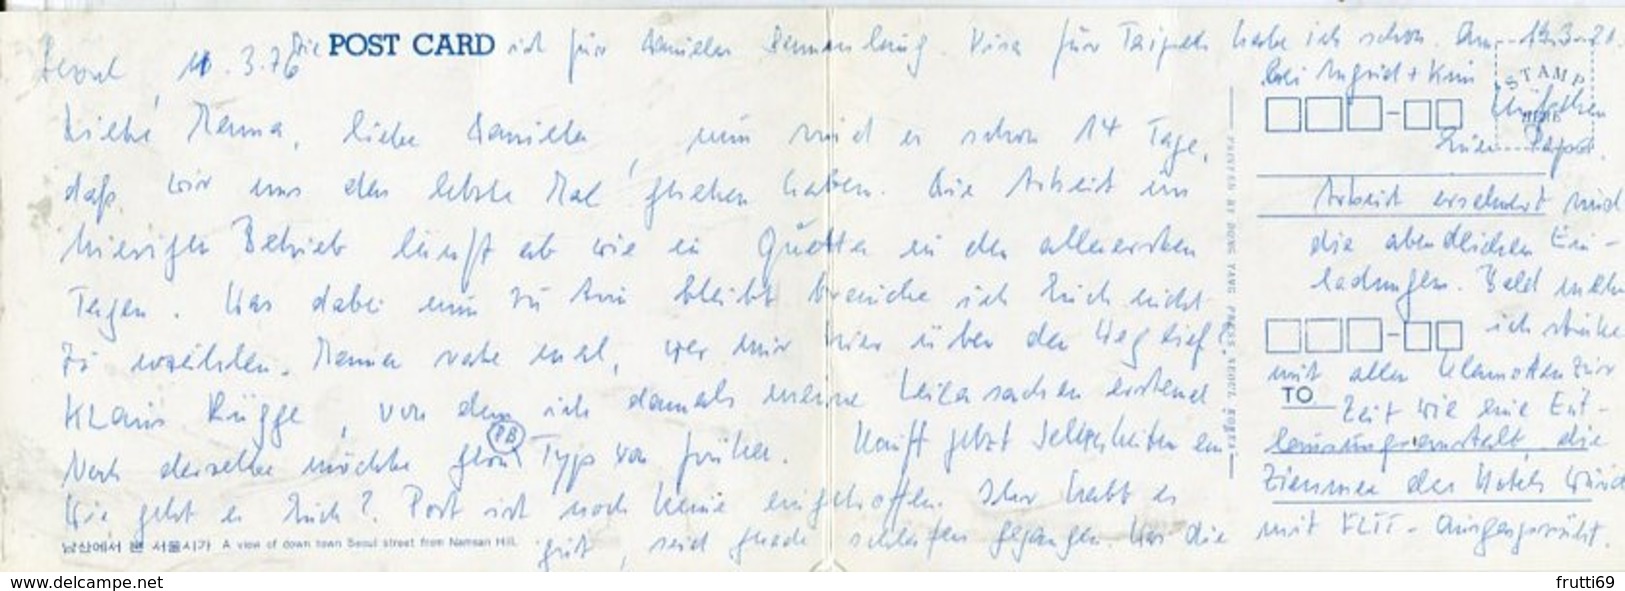 Die POST CARD ist für Daniela Sammlung. Visa für Taipeh habe ich schon. Am 13.3.
Seoul, 10.3.76
bei Ingrid + Kim
STAMP HERE
Liebe Mama, liebe Daniela, nun sind es schon 14 Tage,
daß wir uns das letzte Mal gesehen haben. Die Arbeit im
hiesigen Betrieb läuft ab wie in Quetta in den allerersten
Tagen. Was dabei nun zu tun bleibt brauche ich Euch nicht
zu erzählen. Mama rate mal, wer mir hier über den Weg lief?
Klaus Rügge, von dem ich damals meine Leicasachen erstand
Noch derselbe möchte gern (PB) Typ von früher. Kauft jetzt Seltenheiten ein
Wie geht es Euch? Post ist noch keine eingetroffen. Ihr habt es
gut, seid gerade schlafen gegangen. Was die
Euer Papa.
Arbeit erschwert sind
die abendlichen Ein-
ladungen. Bald mehr
ich stinke
mit allen Klamotten zur
TO
Zeit wie eine Ent-
lausungsanstalt, die
Zimmer des Hotels wurd
mit FLIT - Ausgesprüht.
PRINTED BY DONG YANG PRESS, SEOUL, KOREA
남산에서 본 서울시가 A view of down town Seoul street from Namsan Hill.
www.delcampe.net
frutti69